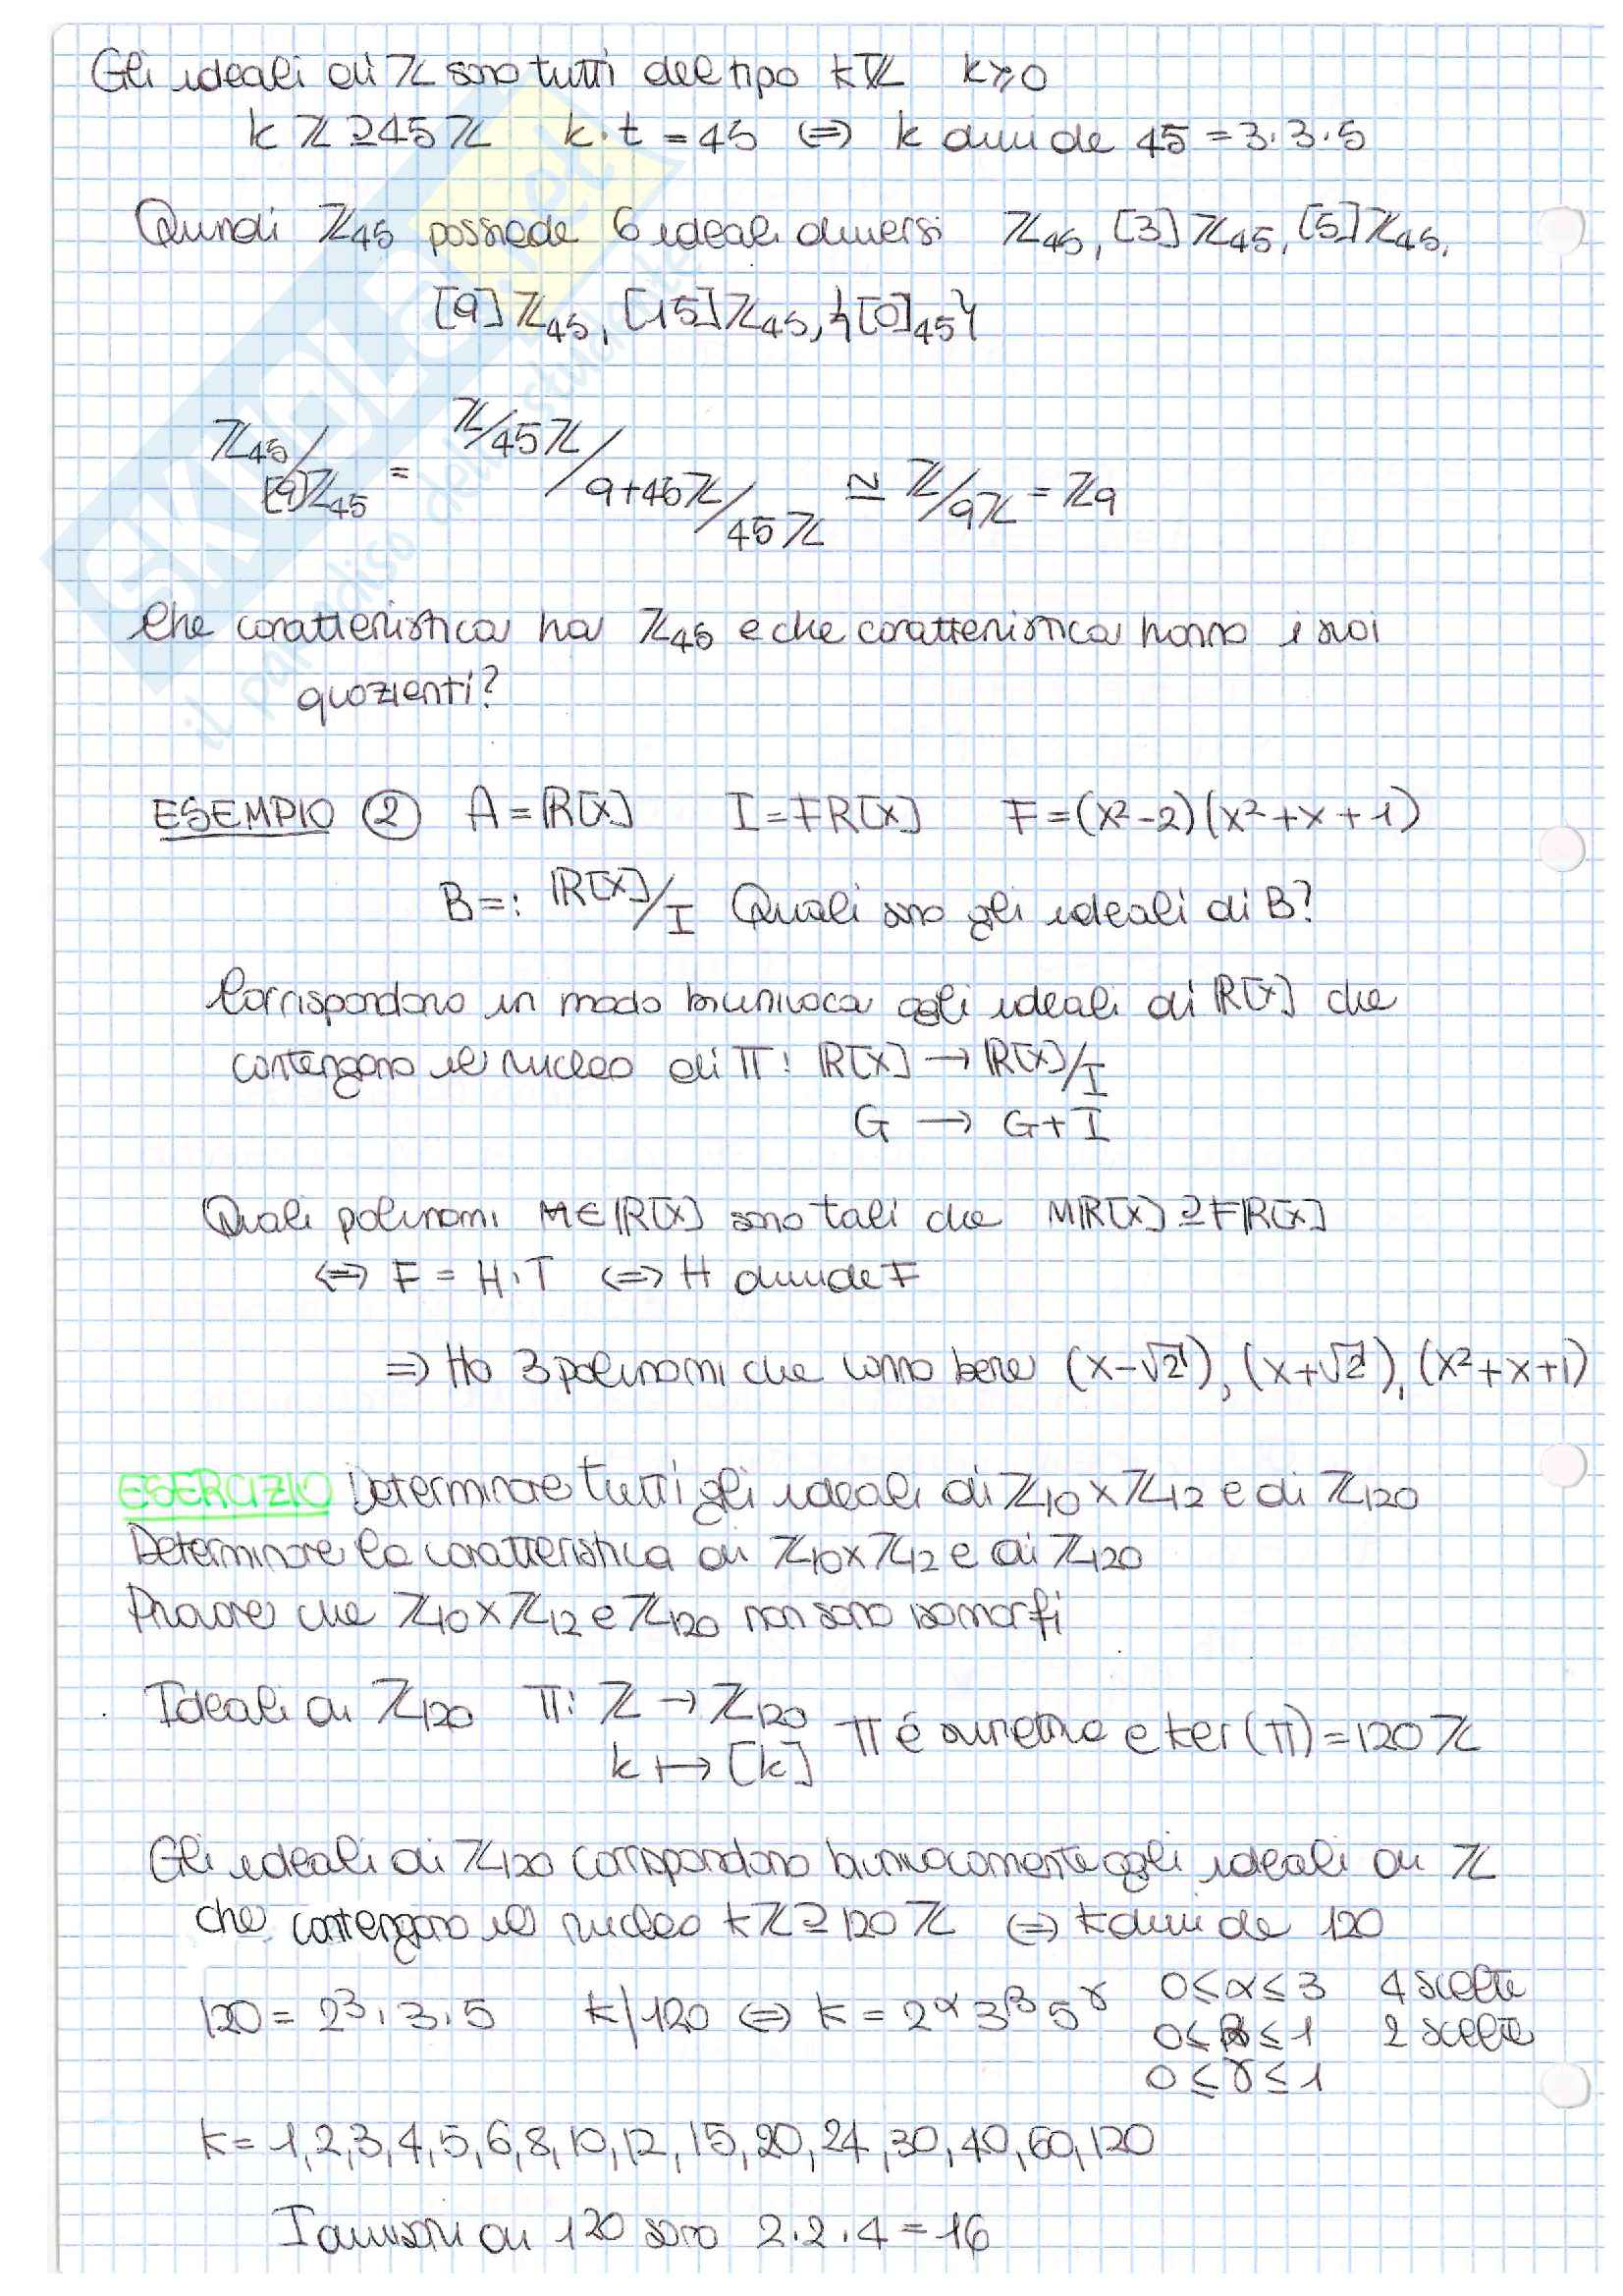 Gli ideali di ℤ sono tutti del tipo kℤ k≥0
kℤ ⊇ 45ℤ k·t = 45 ⇔ k divide 45 = 3·3·5
Quindi ℤ₄₅ possiede 6 ideali diversi ℤ₄₅, [3]ℤ₄₅, [5]ℤ₄₅,
[9]ℤ₄₅, [15]ℤ₄₅, {[0]₄₅}
ℤ₄₅/[9]ℤ₄₅ = ℤ/45ℤ / 9+45ℤ/45ℤ ≅ ℤ/9ℤ = ℤ₉
Che caratteristica ha ℤ₄₅ e che caratteristica hanno i suoi
quozienti?
ESEMPIO ② A = ℝ[X] I = Fℝ[X] F = (x²-2)(x²+x+1)
B =: ℝ[X]/I Quali sono gli ideali di B?
Corrispondono in modo biunivoca agli ideali di ℝ[X] che
contengono il nucleo di π: ℝ[X] → ℝ[X]/I
G → G+I
Quali polinomi H∈ℝ[X] sono tali che Hℝ[X] ⊇ Fℝ[X]
⇔ F = H·T ⇔ H divide F
⇒ Ho 3 polinomi che vanno bene (x-√2), (x+√2), (x²+x+1)
ESERCIZIO Determinare tutti gli ideali di ℤ₁₀×ℤ₁₂ e di ℤ₁₂₀
Determinare la caratteristica di ℤ₁₀×ℤ₁₂ e di ℤ₁₂₀
Provare che ℤ₁₀×ℤ₁₂ e ℤ₁₂₀ non sono isomorfi
Ideali di ℤ₁₂₀ π: ℤ → ℤ₁₂₀ π é suriettiva e ker(π) = 120ℤ
k ↦ [k]
Gli ideali di ℤ₁₂₀ corrispondono biunivocamente agli ideali di ℤ
che contengono il nucleo kℤ ⊇ 120ℤ ⇔ k divide 120
120 = 2³·3·5 k|120 ⇔ k = 2^α 3^β 5^γ 0≤α≤3 4 scelte
0≤β≤1 2 scelte
0≤γ≤1
k = 1,2,3,4,5,6,8,10,12,15,20,24,30,40,60,120
I divisori di 120 sono 2·2·4 = 16
SKUOLA.net
il paradiso dello studente